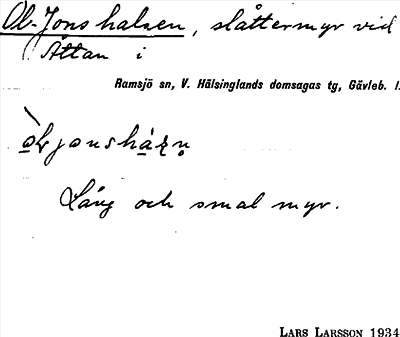 Ol-Jons halsen, slåttermyr vid
Åttan i
Ramsjö sn, V. Hälsinglands domsagas tg, Gävleb. l.
Lång och smal myr.
LARS LARSSON 1934